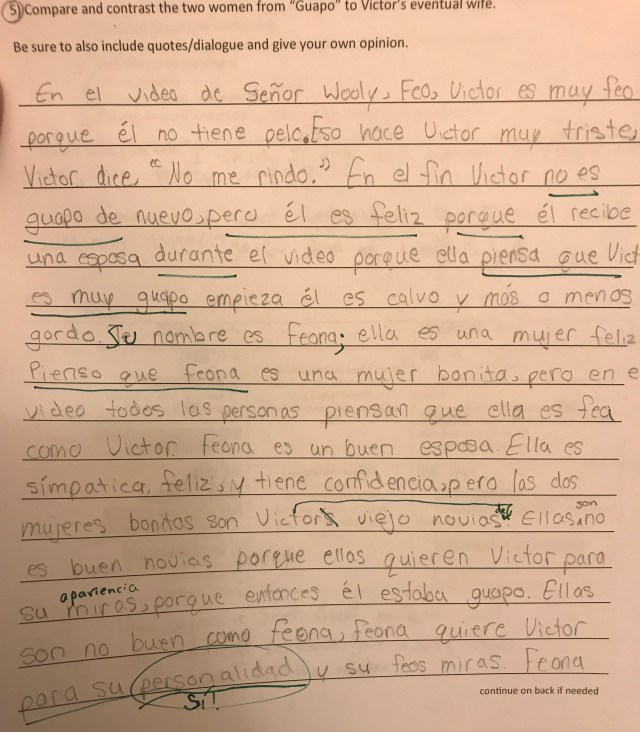 5) Compare and contrast the two women from "Guapo" to Victor's eventual wife.
Be sure to also include quotes/dialogue and give your own opinion.
En el video de Señor Wooly, Feo, Victor es muy feo
porque él no tiene pelo. Eso hace Victor muy triste,
Victor dice, "No me rindo." En el fin Victor no es
guapo de nuevo, pero él es feliz porque él recibe
una esposa durante el video porque ella piensa que Vict
es muy guapo empieza él es calvo y más o menos
gordo. Su nombre es Feona; ella es una mujer feliz
Pienso que Feona es una mujer bonita, pero en e
video todos las personas piensan que ella es fea
como Victor. Feona es un buen esposa. Ella es
simpatica, feliz, y tiene confidencia, pero las dos
son
mujeres bonitas son Victors viejo novias. Ellas no
es buen novias porque ellos quieren Victor para
apariencia
su miras, porque entonces él estaba guapo. Ellas
son no buen como feona, feona quiere Victor
para su personalidad y su feos miras. Feona
Sí!
continue on back if needed